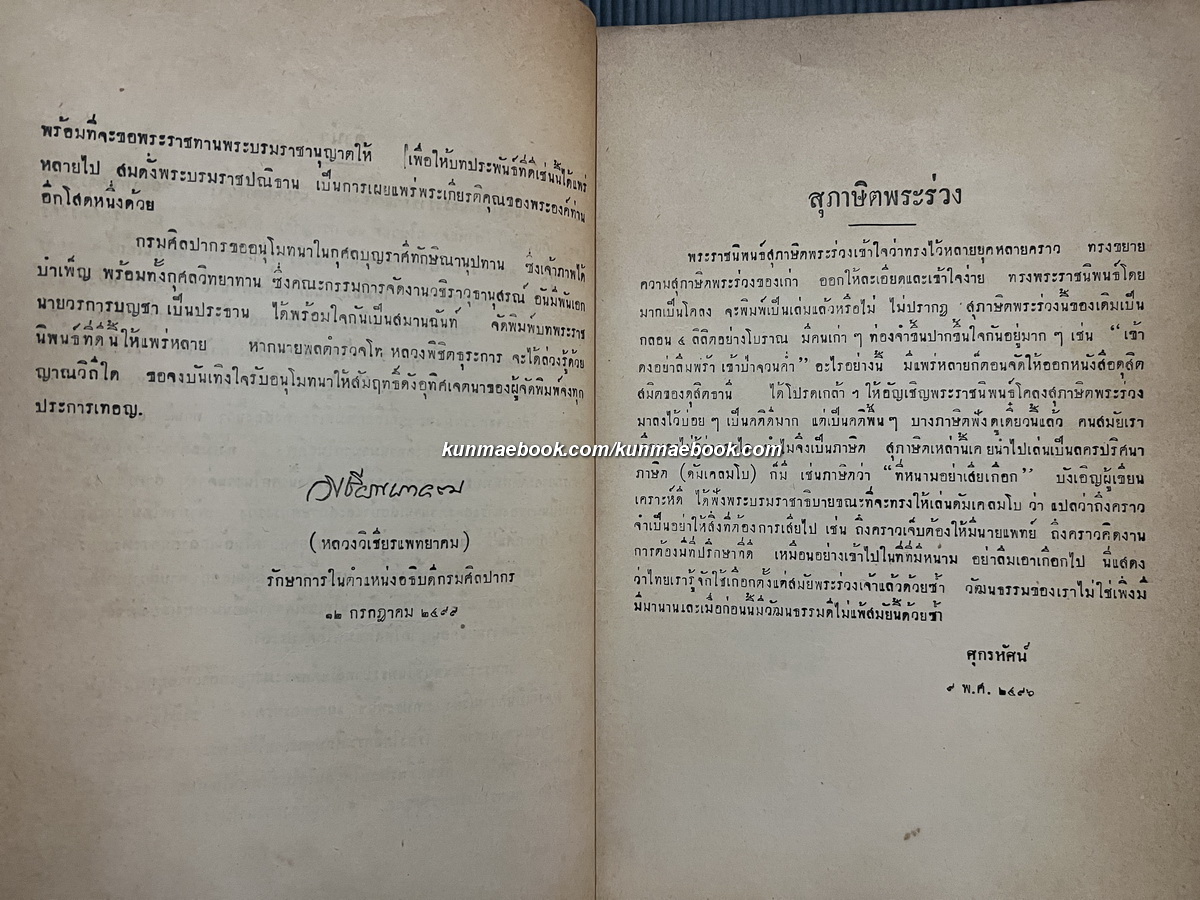 พร้อมที่จะขอพระราชทานพระบรมราชานุญาตให้ เพื่อให้บทประพันธ์ที่ดีเช่นนี้ได้แพร่
หลายไป สมดั่งพระบรมราชปณิธาน เป็นการเผยแพร่พระเกียรติคุณของพระองค์ท่าน
อีกโสดหนึ่งด้วย
กรมศิลปากรขออนุโมทนาในกุศลบุญราศีทักษิณานุปทาน ซึ่งเจ้าภาพได้
บำเพ็ญ พร้อมทั้งกุศลวิทยาทาน ซึ่งคณะกรรมการจัดงานวชิราวุธานุสรณ์ อันมีพันเอก
นายวรการบัญชา เป็นประธาน ได้พร้อมใจกันเป็นสมานฉันท์ จัดพิมพ์บทพระราช
นิพนธ์ที่ดีนี้ให้แพร่หลาย หากนายพลตำรวจโท หลวงพิชิตธุระการ จะได้ล่วงรู้ด้วย
ญาณวิถีใด ขอจงบันเทิงใจรับอนุโมทนาให้สัมฤทธิ์ดังอุทิศเจตนาของผู้จัดพิมพ์จงทุก
ประการเทอญ.
(หลวงวิเชียรแพทยาคม)
รักษาการในตำแหน่งอธิบดีกรมศิลปากร
๑๒ กรกฎาคม
สุภาษิตพระร่วง
พระราชนิพนธ์สุภาษิตพระร่วงเข้าใจว่าทรงไว้หลายยุคหลายคราว ทรงขยาย
ความสุภาษิตพระร่วงของเก่า ออกให้ละเอียดและเข้าใจง่าย ทรงพระราชนิพนธ์โดย
มากเป็นโคลง จะพิมพ์เป็นเล่มแล้วหรือไม่ ไม่ปรากฏ สุภาษิตพระร่วงนี้ของเดิมเป็น
กลอน ๔ ลิลิตอย่างโบราณ มีคนเก่า ๆ ท่องจำขึ้นปากขึ้นใจกันอยู่มาก ๆ เช่น “เข้า
ดงอย่าลืมพร้า เข้าป่าจวนค่ำ” อะไรอย่างนี้ มีแพร่หลายก็ตอนจัดให้ออกหนังสือดุสิต
สมิตของดุสิตธานี ได้โปรดเกล้า ฯ ให้อัญเชิญพระราชนิพนธ์โคลงสุภาษิตพระร่วง
มาลงไว้บ่อย ๆ เป็นคติดีมาก แต่เป็นคติพื้น ๆ บางภาษิตฟังดูเดี๋ยวนี้แล้ว คนสมัยเรา
จึงเป็นภาษิต สุภาษิตเหล่านี้เคยนำไปเล่นเป็นละครปริศนา
ภาษิต (ดัมเคลมโบ) ก็มี เช่นภาษิตว่า “ที่หนามอย่าเสียเกือก” บังเอิญผู้เขียน
เคราะห์ดี ได้ฟังพระบรมราชาธิบายขณะที่จะทรงให้เล่นดัมเคลมโบ ว่า แปลว่าถึงคราว
จำเป็นอย่าให้สิ่งที่ต้องการเสียไป เช่น ถึงคราวเจ็บต้องให้มีนายแพทย์ ถึงคราวคิดงาน
การต้องมีที่ปรึกษาที่ดี เหมือนอย่างเข้าไปในที่ที่มีหนาม อย่าลืมเอาเกือกไป นี่แสดง
ว่าไทยเรารู้จักใช้เกือกตั้งแต่สมัยพระร่วงเจ้าแล้วด้วยซ้ำ วัฒนธรรมของเราไม่ใช่เพิ่งมี
มีมานานและเมื่อก่อนนี้มีวัฒนธรรมดีไม่แพ้สมัยนี้ด้วยซ้ำ
ศุกรหัศน์
๙ พ.ศ. ๒๔๙๖
kunmaebook.com/kunmaebook.com